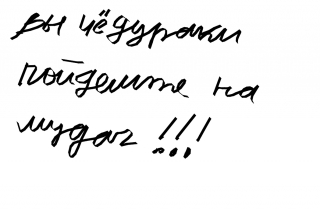 вы чёдураки
пойдемте на
мудач !!!